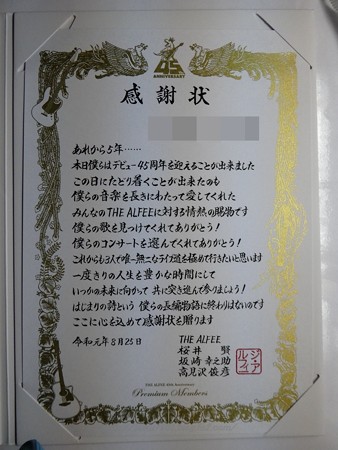 45
ANNIVERSARY
感謝状
あれから5年……
本日僕らはデビュー45周年を迎えることが出来ました
この日にたどり着くことが出来たのも
僕らの音楽を長きにわたって愛してくれた
みんなのTHE ALFEEに対する情熱の賜物です
僕らの歌を見つけてくれてありがとう!
僕らのコンサートを選んでくれてありがとう!
これからも3人で唯一無二なライブ道を極めて行きたいと思います
一度きりの人生を豊かな時間にして
いつかの未来に向かって 共に突き進んで参りましょう!
はじまりの詩という 僕らの長編物語に終わりはないのです
ここに心を込めて感謝状を贈ります
令和元年8月25日
THE ALFEE
桜井 賢
坂崎 幸之助
高見沢 俊彦
ジ・ア
ルフィー
THE ALFEE 45th Anniversary
Premium Members